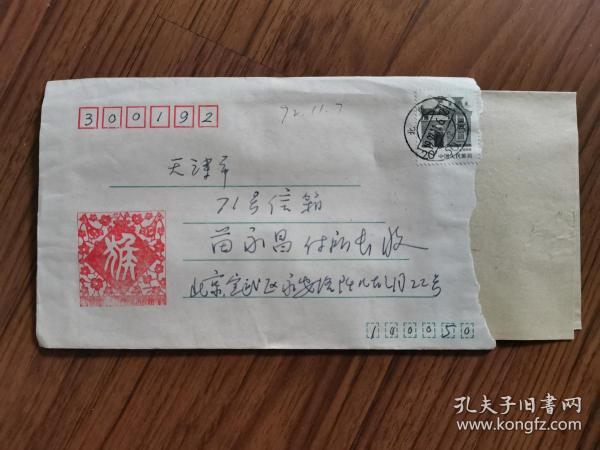 300192
92.11.7
北京
20
中国人民邮政
天津市
71号信箱
苗永昌付所长收
猴
北京宣武区永安路
22号
100050
孔夫子旧书网
www.kongfz.com